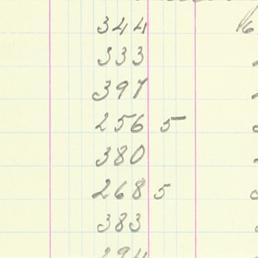 344
333
397
256 5
380
268 5
383
294